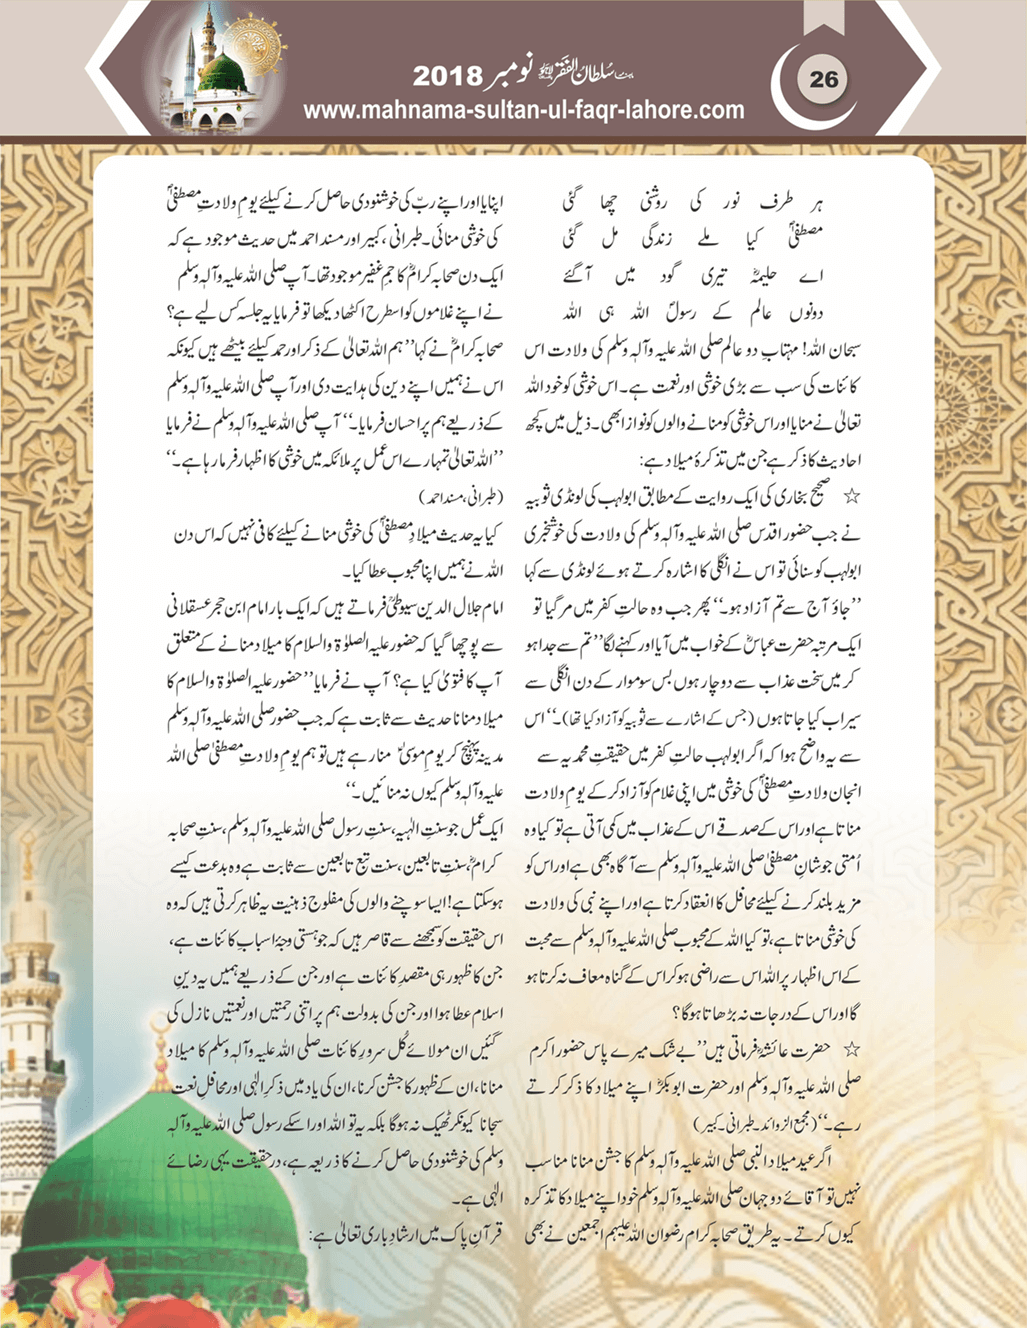 ماہنامہ سلطان الفقر لاہور نومبر 2018
26
www.mahnama-sultan-ul-faqr-lahore.com
ہر طرف نور کی روشنی چھا گئی
مصطفیؐ کیا ملے زندگی مل گئی
اے حلیمہؓ تیری گود میں آگئے
دونوں عالم کے رسولؐ اللہ ہی اللہ
سبحان اللہ! مہتابِ دو عالم صلی اللہ علیہ وآلہٖ وسلم کی ولادت اس
کائنات کی سب سے بڑی خوشی اور نعمت ہے۔ اس خوشی کو خود اللہ
تعالیٰ نے منایا اور اس خوشی کو منانے والوں کو نوازا بھی۔ ذیل میں کچھ
احادیث کا ذکر ہے جن میں تذکرۂ میلاد ہے:
☆ صحیح بخاری کی ایک روایت کے مطابق ابولہب کی لونڈی ثوبیہ
نے جب حضورِ اقدس صلی اللہ علیہ وآلہٖ وسلم کی ولادت کی خوشخبری
ابولہب کو سنائی تو اس نے انگلی کا اشارہ کرتے ہوئے لونڈی سے کہا
’’جاؤ آج سے تم آزاد ہو۔‘‘ پھر جب وہ حالتِ کفر میں مر گیا تو
ایک مرتبہ حضرت عباسؓ کے خواب میں آیا اور کہنے لگا ’’تم سے جدا ہو
کر میں سخت عذاب سے دوچار ہوں بس سوموار کے دن انگلی سے
سیراب کیا جاتا ہوں (جس کے اشارے سے ثوبیہ کو آزاد کیا تھا)۔‘‘ اس
سے یہ واضح ہوا کہ اگر ابولہب حالتِ کفر میں حقیقتِ محمدیہ سے
انجان ولادتِ مصطفیؐ کی خوشی میں اپنی غلام کو آزاد کر کے یومِ ولادت
مناتا ہے اور اس کے صدقے اس کے عذاب میں کمی آتی ہے تو کیا وہ
اُمتی جو شانِ مصطفیٰ صلی اللہ علیہ وآلہٖ وسلم سے آگاہ بھی ہے اور اس کو
مزید بلند کرنے کیلئے محافل کا انعقاد کرتا ہے اور اپنے نبی کی ولادت
کی خوشی مناتا ہے، تو کیا اللہ کے محبوب صلی اللہ علیہ وآلہٖ وسلم سے محبت
کے اس اظہار پر اللہ اس سے راضی ہو کر اس کے گناہ معاف نہ کرتا ہو
گا اور اس کے درجات نہ بڑھاتا ہوگا؟
☆ حضرت عائشہؓ فرماتی ہیں ’’بے شک میرے پاس حضور اکرم
صلی اللہ علیہ وآلہٖ وسلم اور حضرت ابوبکرؓ اپنے میلاد کا ذکر کرتے
رہے۔‘‘ (مجمع الزوائد۔ طبرانی۔ کبیر)
اگر عید میلاد النبی صلی اللہ علیہ وآلہٖ وسلم کا جشن منانا مناسب
نہیں تو آقائے دو جہان صلی اللہ علیہ وآلہٖ وسلم خود اپنے میلاد کا تذکرہ
کیوں کرتے۔ یہ طریق صحابہ کرام رضوان اللہ علیہم اجمعین نے بھی
اپنایا اور اپنے ربّ کی خوشنودی حاصل کرنے کیلئے یومِ ولادتِ مصطفیؐ
کی خوشی منائی۔ طبرانی، کبیر اور مسند احمد میں حدیث موجود ہے کہ
ایک دن صحابہ کرامؓ کا جمِ غفیر موجود تھا۔ آپ صلی اللہ علیہ وآلہٖ وسلم
نے اپنے غلاموں کو اسطرح اکٹھا دیکھا تو فرمایا یہ جلسہ کس لیے ہے؟
صحابہ کرامؓ نے کہا ’’ہم اللہ تعالیٰ کے ذکر اور حمد کیلئے بیٹھے ہیں کیونکہ
اس نے ہمیں اپنے دین کی ہدایت دی اور آپ صلی اللہ علیہ وآلہٖ وسلم
کے ذریعے ہم پر احسان فرمایا۔‘‘ آپ صلی اللہ علیہ وآلہٖ وسلم نے فرمایا
’’اللہ تعالیٰ تمہارے اس عمل پر ملائکہ میں خوشی کا اظہار فرما رہا ہے۔‘‘
(طبرانی، مسند احمد)
کیا یہ حدیث میلادِ مصطفیؐ کی خوشی منانے کیلئے کافی نہیں کہ اس دن
اللہ نے ہمیں اپنا محبوب عطا کیا۔
امام جلال الدین سیوطیؒ فرماتے ہیں کہ ایک بار امام ابن حجر عسقلانی
سے پوچھا گیا کہ حضور علیہ الصلوٰۃ والسلام کا میلاد منانے کے متعلق
آپ کا فتویٰ کیا ہے؟ آپ نے فرمایا ’’حضور علیہ الصلوٰۃ والسلام کا
میلاد منانا حدیث سے ثابت ہے کہ جب حضور صلی اللہ علیہ وآلہٖ وسلم
مدینہ پہنچ کر یومِ موسیٰؑ منا رہے ہیں تو ہم یومِ ولادتِ مصطفیٰ صلی اللہ
علیہ وآلہٖ وسلم کیوں نہ منائیں۔‘‘
ایک عمل جو سنتِ الٰہیہ، سنتِ رسول صلی اللہ علیہ وآلہٖ وسلم، سنتِ صحابہ
کرامؓ، سنتِ تابعین، سنت تبع تابعین سے ثابت ہے وہ بدعت کیسے
ہوسکتا ہے! ایسا سوچنے والوں کی مفلوج ذہنیت یہ ظاہر کرتی ہیں کہ وہ
اس حقیقت کو سمجھنے سے قاصر ہیں کہ جو ہستی وجۂ اسبابِ کائنات ہے،
جن کا ظہور ہی مقصدِ کائنات ہے اور جن کے ذریعے ہمیں یہ دینِ
اسلام عطا ہوا اور جن کی بدولت ہم پر اتنی رحمتیں اور نعمتیں نازل کی
گئیں ان مولائے کُل سرورِ کائنات صلی اللہ علیہ وآلہٖ وسلم کا میلاد
منانا، ان کے ظہور کا جشن کرنا، ان کی یاد میں ذکرِ الٰہی اور محافلِ نعت
سجانا کیونکر ٹھیک نہ ہوگا بلکہ یہ تو اللہ اور اسکے رسول صلی اللہ علیہ وآلہٖ
وسلم کی خوشنودی حاصل کرنے کا ذریعہ ہے، درحقیقت یہی رضائے
الٰہی ہے۔
قرآنِ پاک میں ارشادِ باری تعالیٰ ہے: